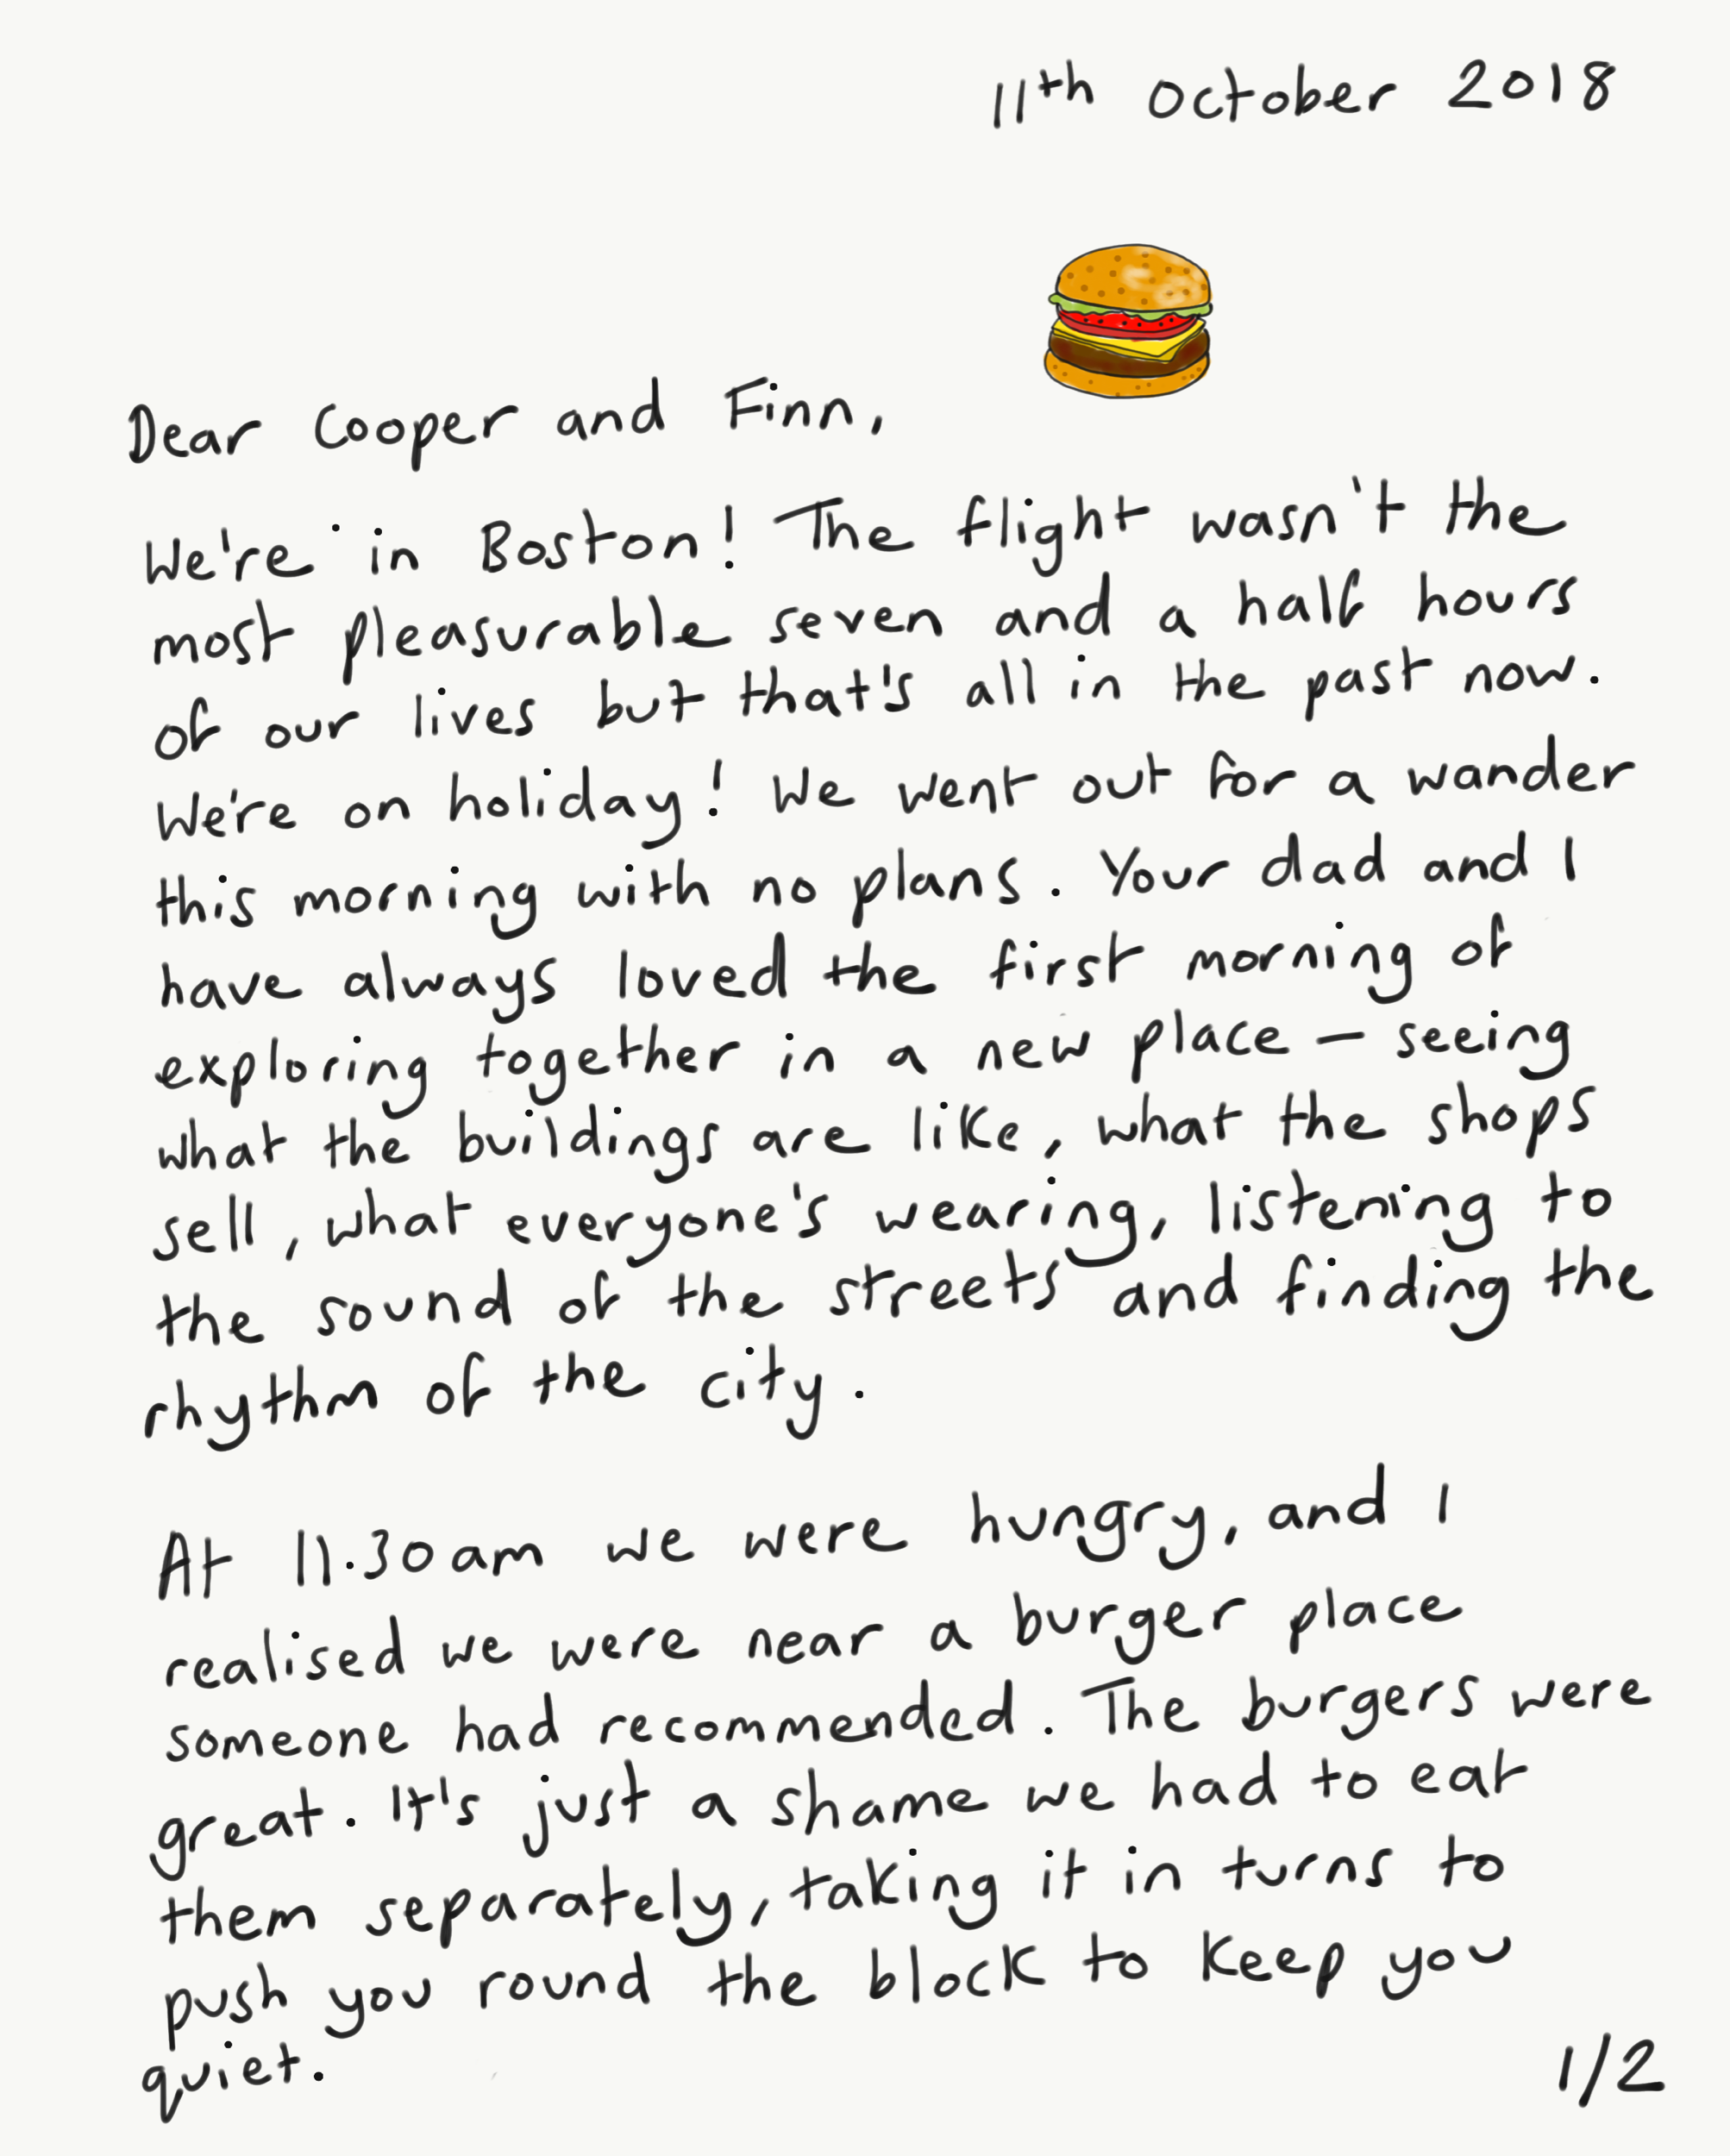 11th October 2018
Dear Cooper and Finn,
We're in Boston! The flight wasn't the
most pleasurable seven and a half hours
of our lives but that's all in the past now.
We're on holiday! We went out for a wander
this morning with no plans. Your dad and I
have always loved the first morning of
exploring together in a new place – seeing
what the buildings are like, what the shops
sell, what everyone's wearing, listening to
the sound of the streets and finding the
rhythm of the city.
At 11.30am we were hungry, and I
realised we were near a burger place
someone had recommended. The burgers were
great. It's just a shame we had to eat
them separately, taking it in turns to
push you round the block to keep you
quiet.
1/2